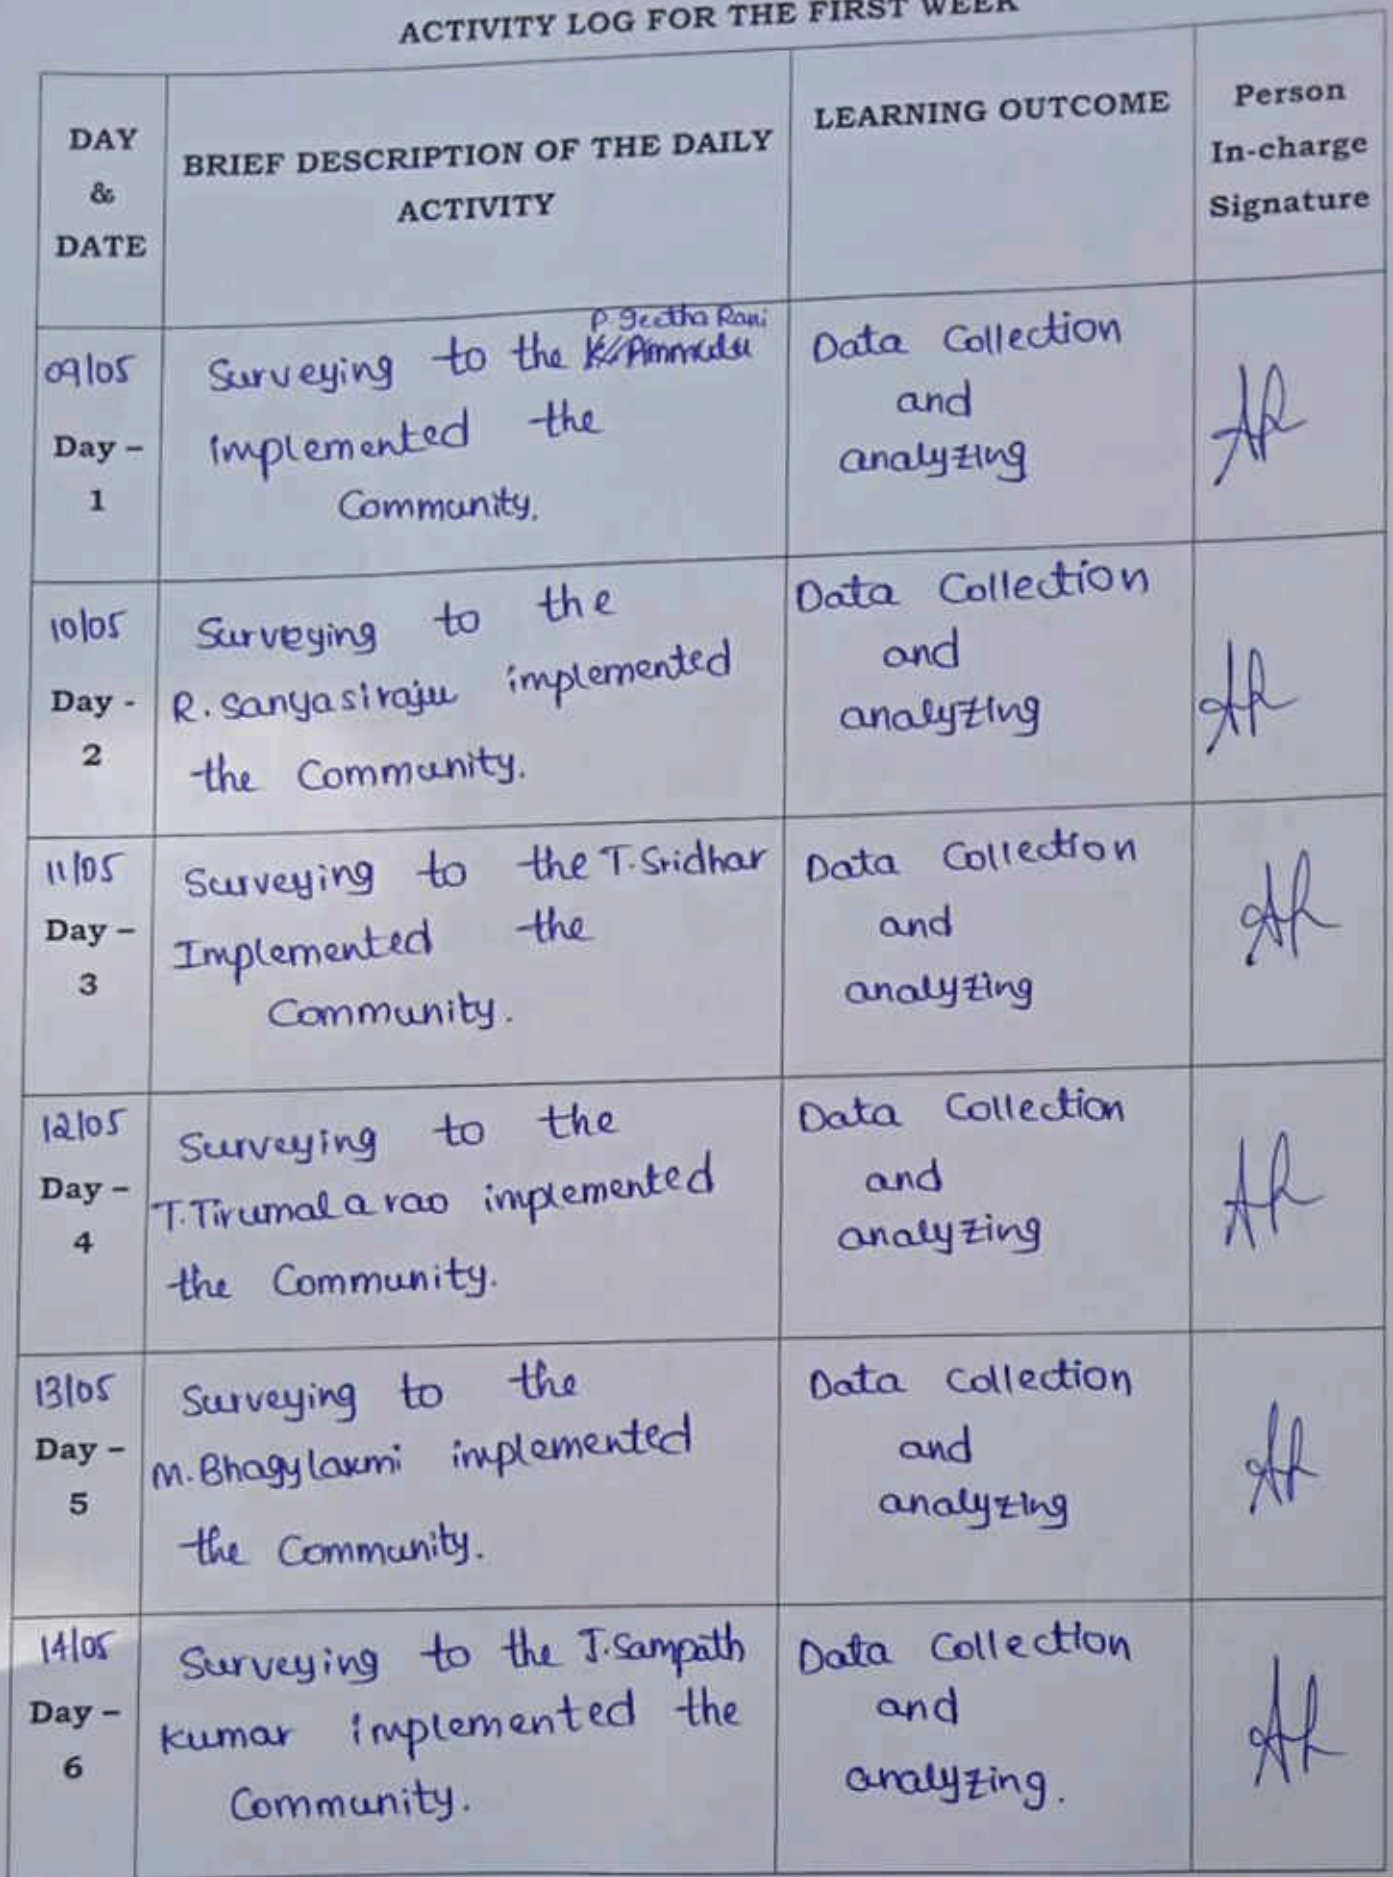 ACTIVITY LOG FOR THE FIRST WEEK
DAY
&
DATE
BRIEF DESCRIPTION OF THE DAILY
ACTIVITY
LEARNING OUTCOME
Person
In-charge
Signature
09/05
Day –
1
P. Geetha Rani
Surveying to the
implemented the
Community.
Data Collection
and
analyzing
10/05
Day -
2
Surveying to the
R. Sanyasiraju implemented
the Community.
Data Collection
and
analyzing
11/05
Day –
3
Surveying to the T. Sridhar
Implemented the
Community.
Data Collection
and
analyzing
12/05
Day –
4
Surveying to the
T. Tirumala rao implemented
the Community.
Data Collection
and
analyzing
13/05
Day –
5
Surveying to the
M. Bhagylaxmi implemented
the Community.
Data Collection
and
analyzing
14/05
Day –
6
Surveying to the J. Sampath
kumar implemented the
Community.
Data Collection
and
analyzing.